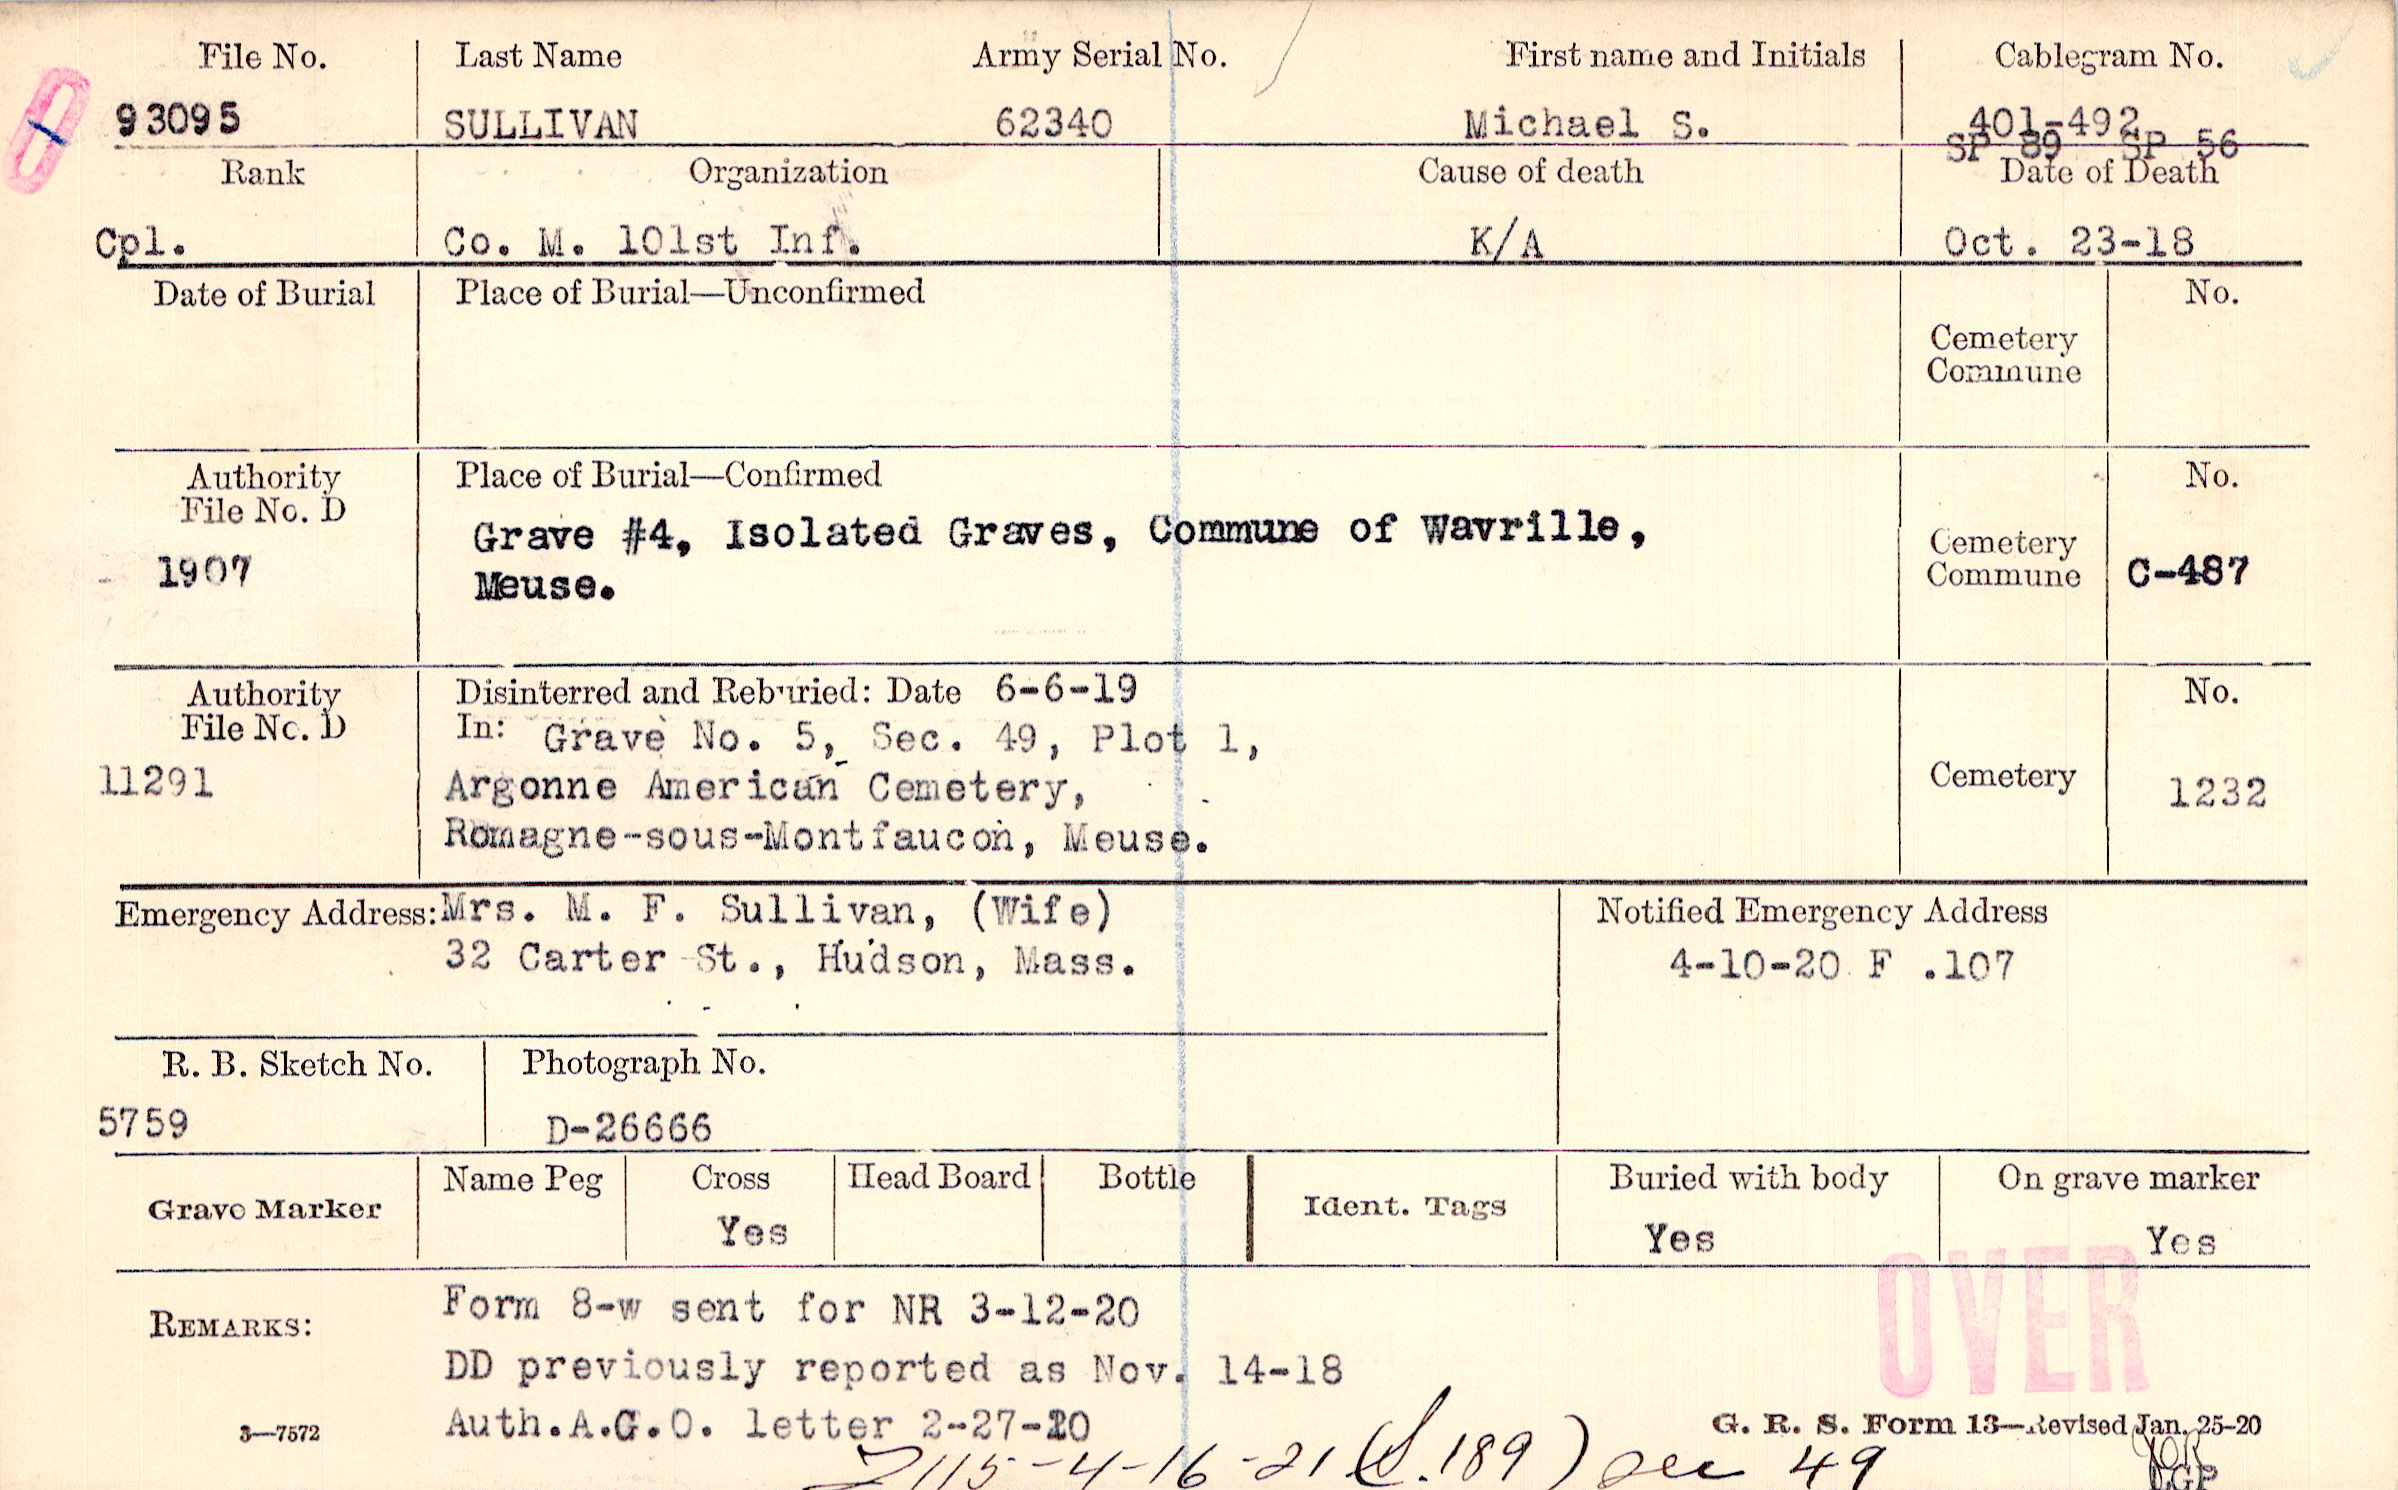 File No. Last Name Army Serial No. First name and Initials Cablegram No.
93095 SULLIVAN 62340 Michael S. 401-492
SP 89 SP 56
Rank Organization Cause of death Date of Death
Cpl. Co. M. 101st Inf. K/A Oct. 23-18
Date of Burial Place of Burial—Unconfirmed No.
Cemetery
Commune
Authority Place of Burial—Confirmed No.
File No. D
Grave #4, Isolated Graves, Commune of Wavrille,
Cemetery
1907 Meuse. Commune C-487
Authority Disinterred and Reburied: Date 6-6-19 No.
File No. D In: Grave No. 5, Sec. 49, Plot 1,
11291 Argonne American Cemetery, Cemetery 1232
Romagne-sous-Montfaucon, Meuse.
Emergency Address: Mrs. M. F. Sullivan, (Wife) Notified Emergency Address
32 Carter St., Hudson, Mass. 4-10-20 F .107
R. B. Sketch No. Photograph No.
5759 D-26666
Grave Marker Name Peg Cross Head Board Bottle Ident. Tags Buried with body On grave marker
Yes Yes Yes
OVER
REMARKS: Form 8-w sent for NR 3-12-20
DD previously reported as Nov. 14-18
3—7572 Auth.A.G.O. letter 2-27-20 G. R. S. Form 13—Revised Jan. 25-20
115-4-16-21 (S.189) sec 49
LGP